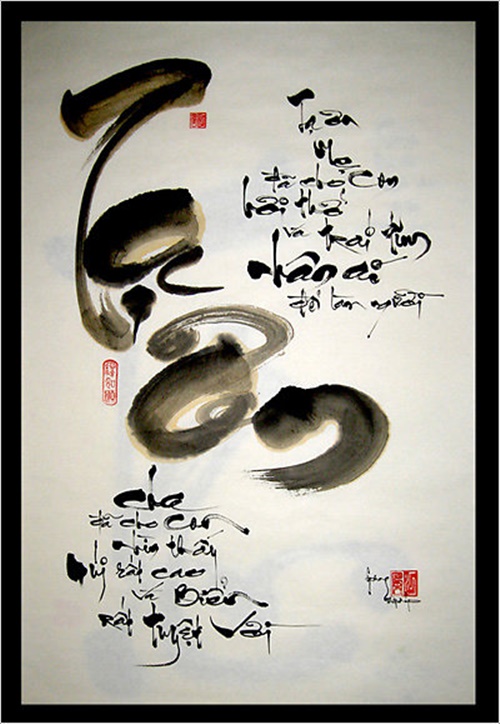 Tạ
Ơn
Tạ ơn
Mẹ
đã cho Con
hơi thở
và trái tim
nhân ái
để làm người
Cha
đã cho Con
nhìn thấy
Núi rất cao
và Biển
rất tuyệt vời